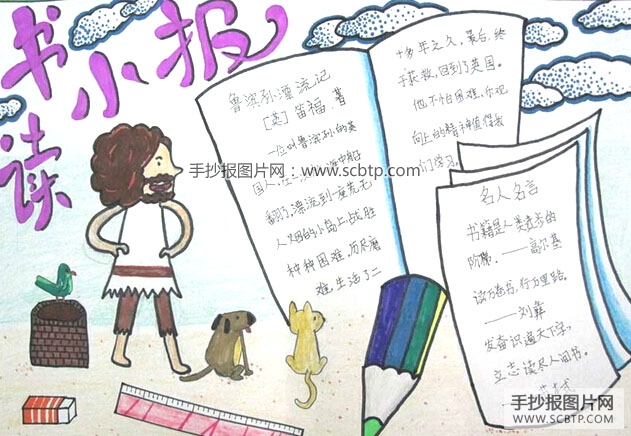 读书小报
鲁滨孙漂流记
[英] 笛福 著
一位叫鲁滨孙的英
国人,在
海中船
翻了,漂流到一座荒无
人烟的小岛上,战胜
种种困难,历尽磨
难,生活了二
十多年之久,最后,终
于获救,回到了英国。
他不怕困难、乐观
向上的精神值得我
们学习。
名人名言
书籍是人类进步的
阶梯。——高尔基
读万卷书,行万里路。
——刘彝
发奋识遍天下字,
立志读尽人间书。
手抄报图片网:www.scbtp.com
手抄报图片网
WWW.SCBTP.COM